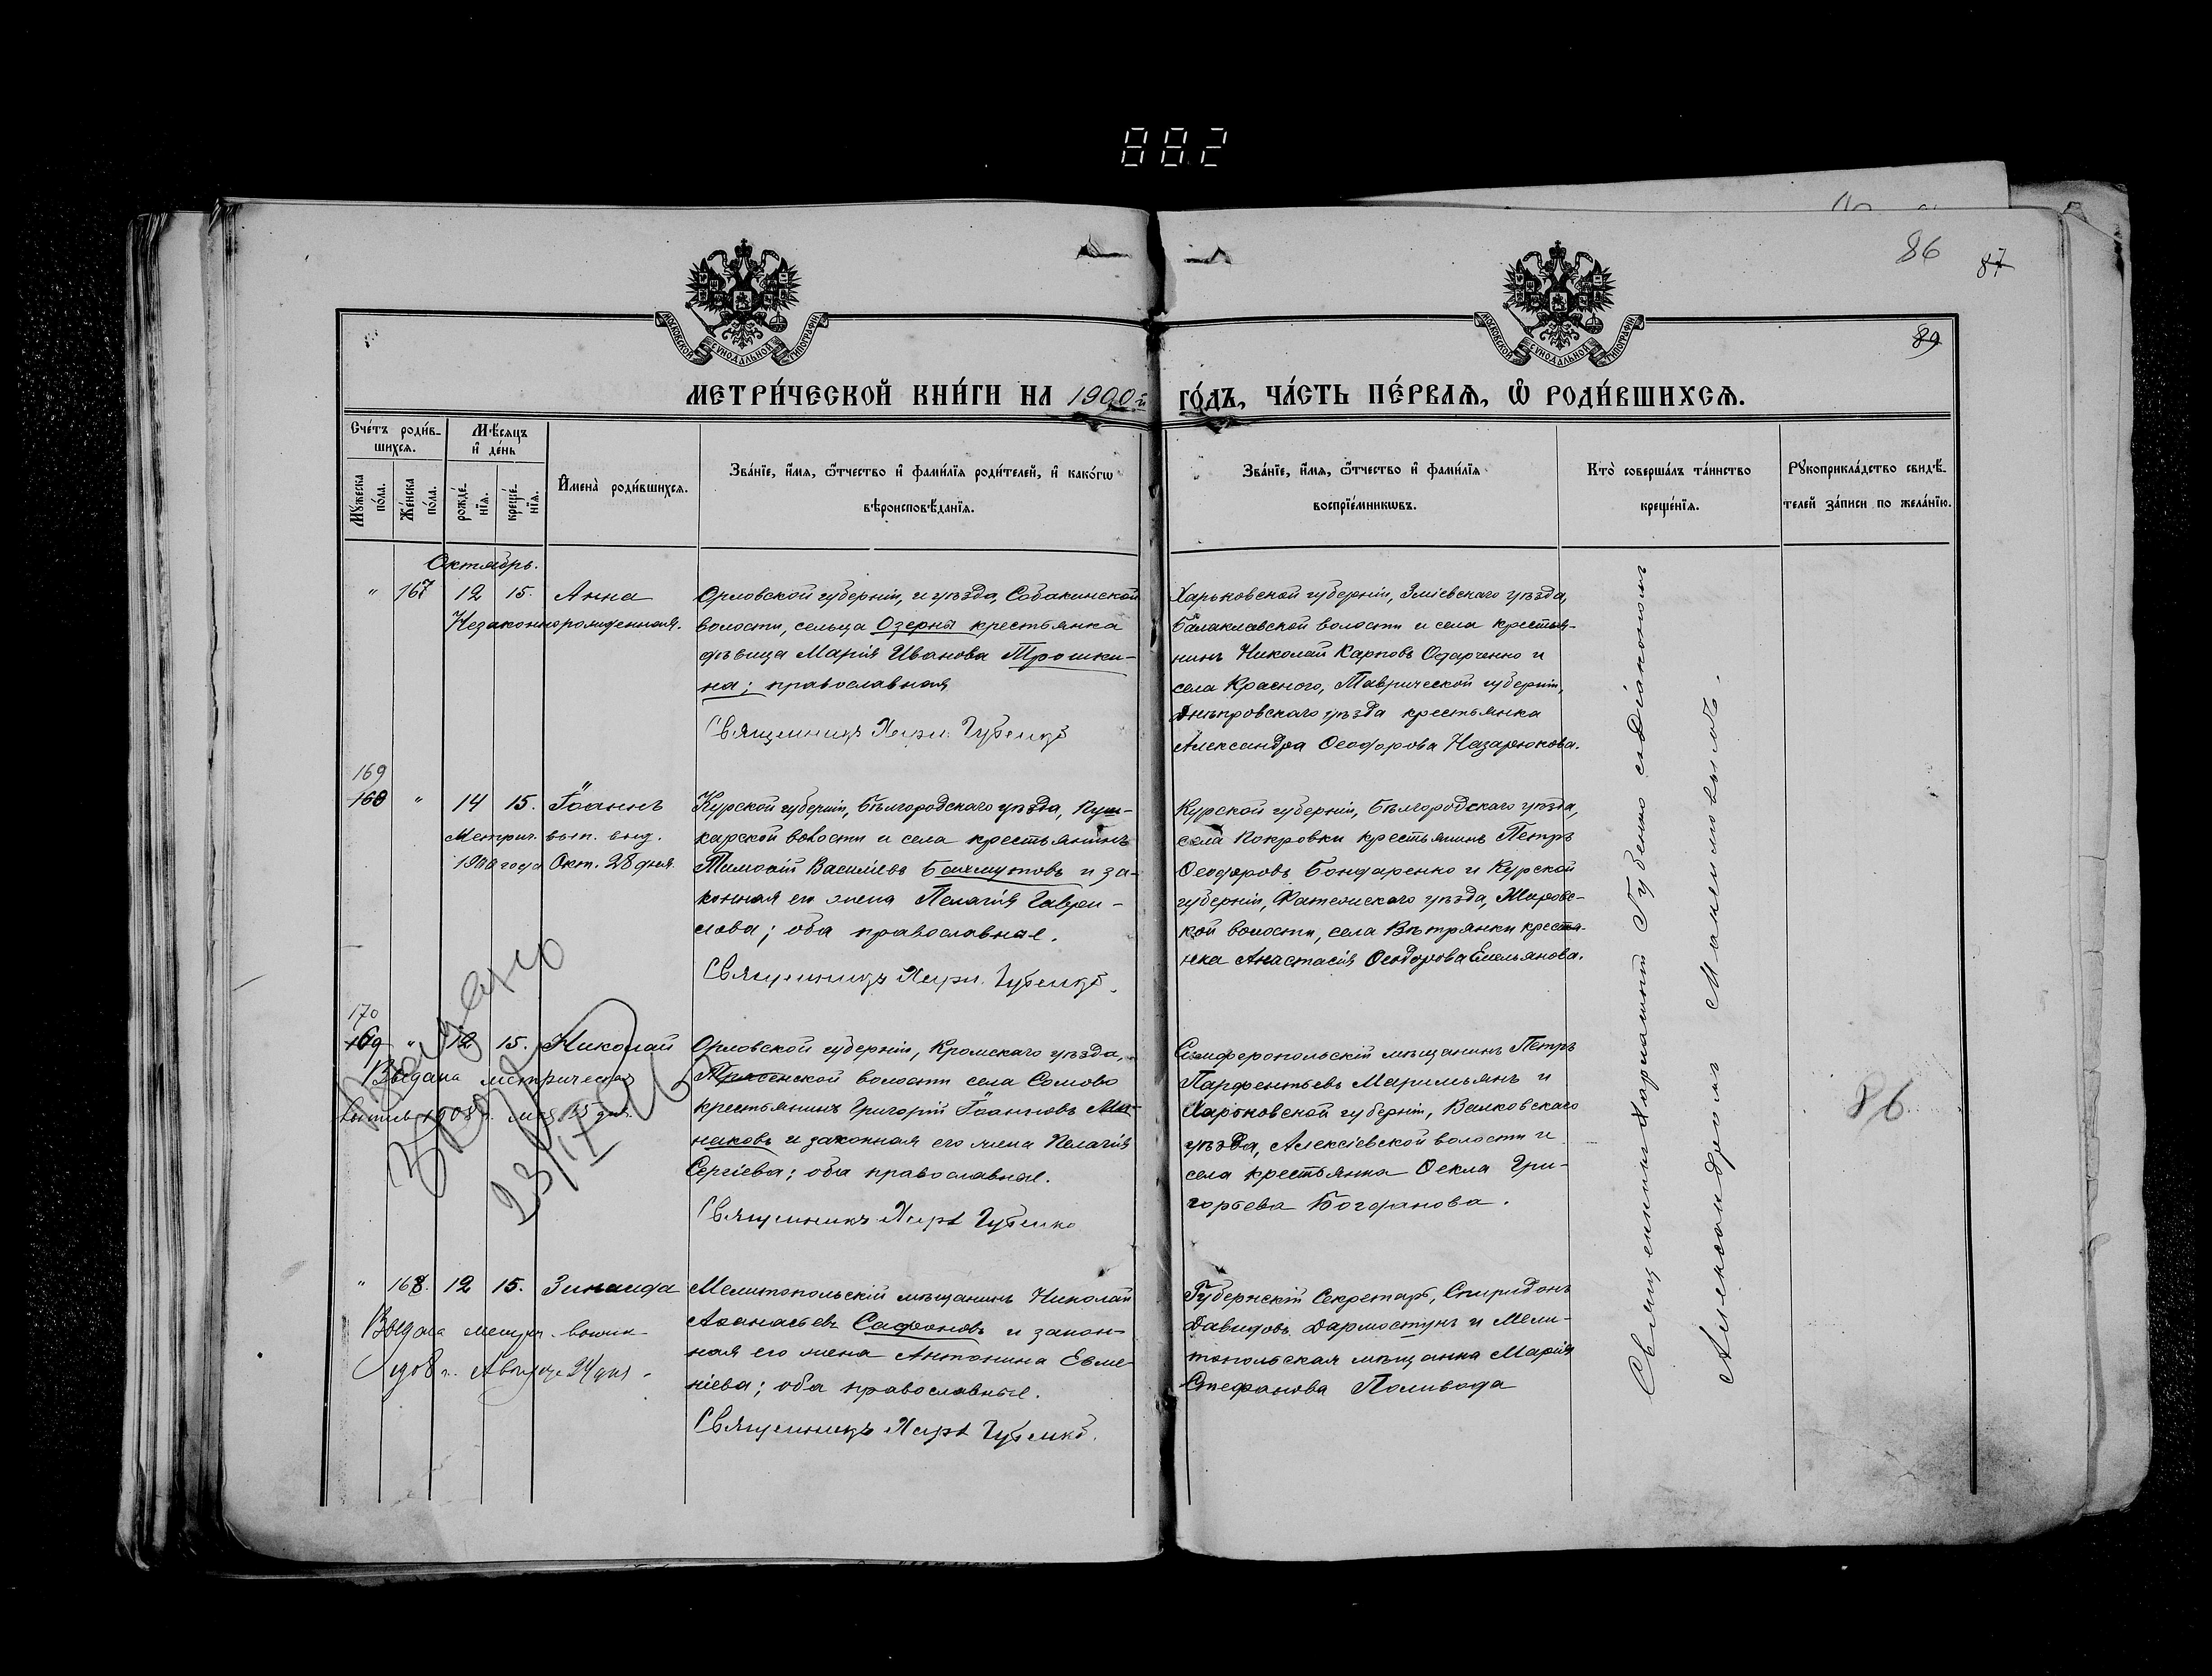 882
86 87
89
МОСКОВСКОЙ СѴНОДАЛЬНОЙ ТИПОГРАФІИ
МОСКОВСКОЙ СѴНОДАЛЬНОЙ ТИПОГРАФІИ
МЕТРИ́ЧЕСКОЙ КНИ́ГИ НА 1900й ГО́ДЪ, ЧА́СТЬ ПЕ́РВАѦ, Ѡ҆ РОДИ́ВШИХСѦ.
Сче́тъ роди́в-
шихсѧ.
Мꙋ́жеска по́ла.
Же́нска по́ла.
Мѣ́сѧцъ
и҆ де́нь
рожде́-нїѧ.
креще́-нїѧ.
И҆мена̀ роди́вшихсѧ.
Зва́нїе, и҆́мѧ, ѻ҆́тчество и҆ фами́лїѧ роди́телей, и҆ како́гѡ
вѣроисповѣ́данїѧ.
Зва́нїе, и҆́мѧ, ѻ҆́тчество и҆ фами́лїѧ
воспрїе́мникѡвъ.
Кто̀ соверша́лъ та́инство
креще́нїѧ.
Рꙋкоприкла́дство свидѣ́-
телей за́писи по жела́нїю.
Октябрь.
" 167 12 15. Анна
Незаконнорожденная.
Орловской губерніи, и уѣзда, Собакинской
волости, сельца Озерны крестьянка
дѣвица Марія Иванова Трошки-
на; православная
Священникъ Хар. Губенко
Харьковской губерніи, Зміевскаго уѣзда,
Балаклавской волости и села крестья-
нинъ Николай Карповъ Одарченко и
села Красного, Таврической губерніи,
Днѣпровскаго уѣзда крестьянка
Александра Ѳеодорова Назарюкова.
169
168 " 14 15. Іоаннъ
Метрич. вып. выд.
года Окт. 28 дня.
Курской губерніи, Бѣлгородскаго уѣзда, Пуш-
карской волости и села крестьянинъ
Тимоѳій Василіевъ Бахмутовъ и за-
конная его жена Пелагія Гаври-
лова; оба православные.
Священникъ Хар. Губенко.
Курской губерніи, Бѣлгородскаго уѣзда,
села Покровки крестьянинъ Петръ
Ѳеодоровъ Бондаренко и Курской
губерніи, Фатежскаго уѣзда,
кой волости, села Вѣтрянки кресть-
янка Анастасія Ѳеодорова Емельянова.
170
169 " 12 15. Николай
Выдана метрическая
1908 г. 15 дня
Выдано
23/IV
Орловской губерніи, Кромскаго уѣзда,
волости села Сомово
крестьянинъ Григорій Іоанновъ Ми-
наковъ и законная его жена Пелагія
Сергіева; оба православные.
Священникъ Хар. Губенко
Симферопольскій мѣщанинъ Петръ
Парфентьевъ Маримьянъ и
Харьковской губерніи, Валковскаго
уѣзда, Алексіевской волости и
села крестьянка Ѳекла Гри-
горьева Богданова.
86
" 168. 12 15. Зинаида
Выдана метрич. выпис.
1908 г. Августа 24 дня.
Мелитопольскій мѣщанинъ Николай
Аѳанасьевъ Сафоновъ и закон-
ная его жена Антонина Евме-
ніева; оба православные.
Священникъ Хар. Губенко.
Губернскій Секретарь, Спиридонъ
Давидовъ Дармостукъ и Мели-
топольская мѣщанка Марія
Стефанова Поливода
Священникъ Харлампій Губенко съ діакономъ
Александромъ Манжиловымъ.